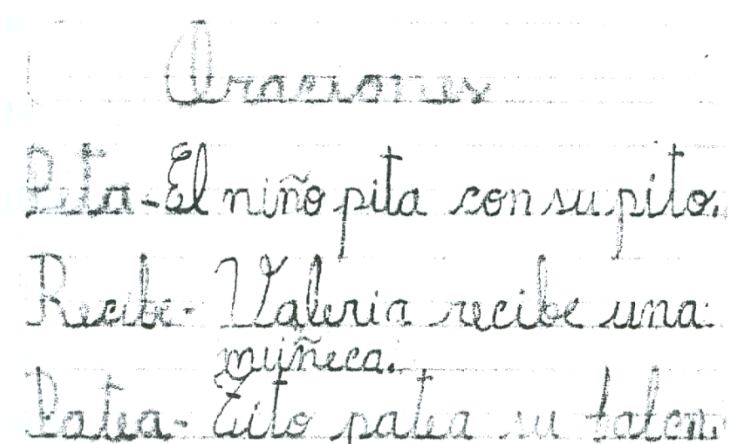 Oraciones
Pita-El niño pita con su pito.
Recibe- Valeria recibe una
muñeca.
Patea- Tito patea su